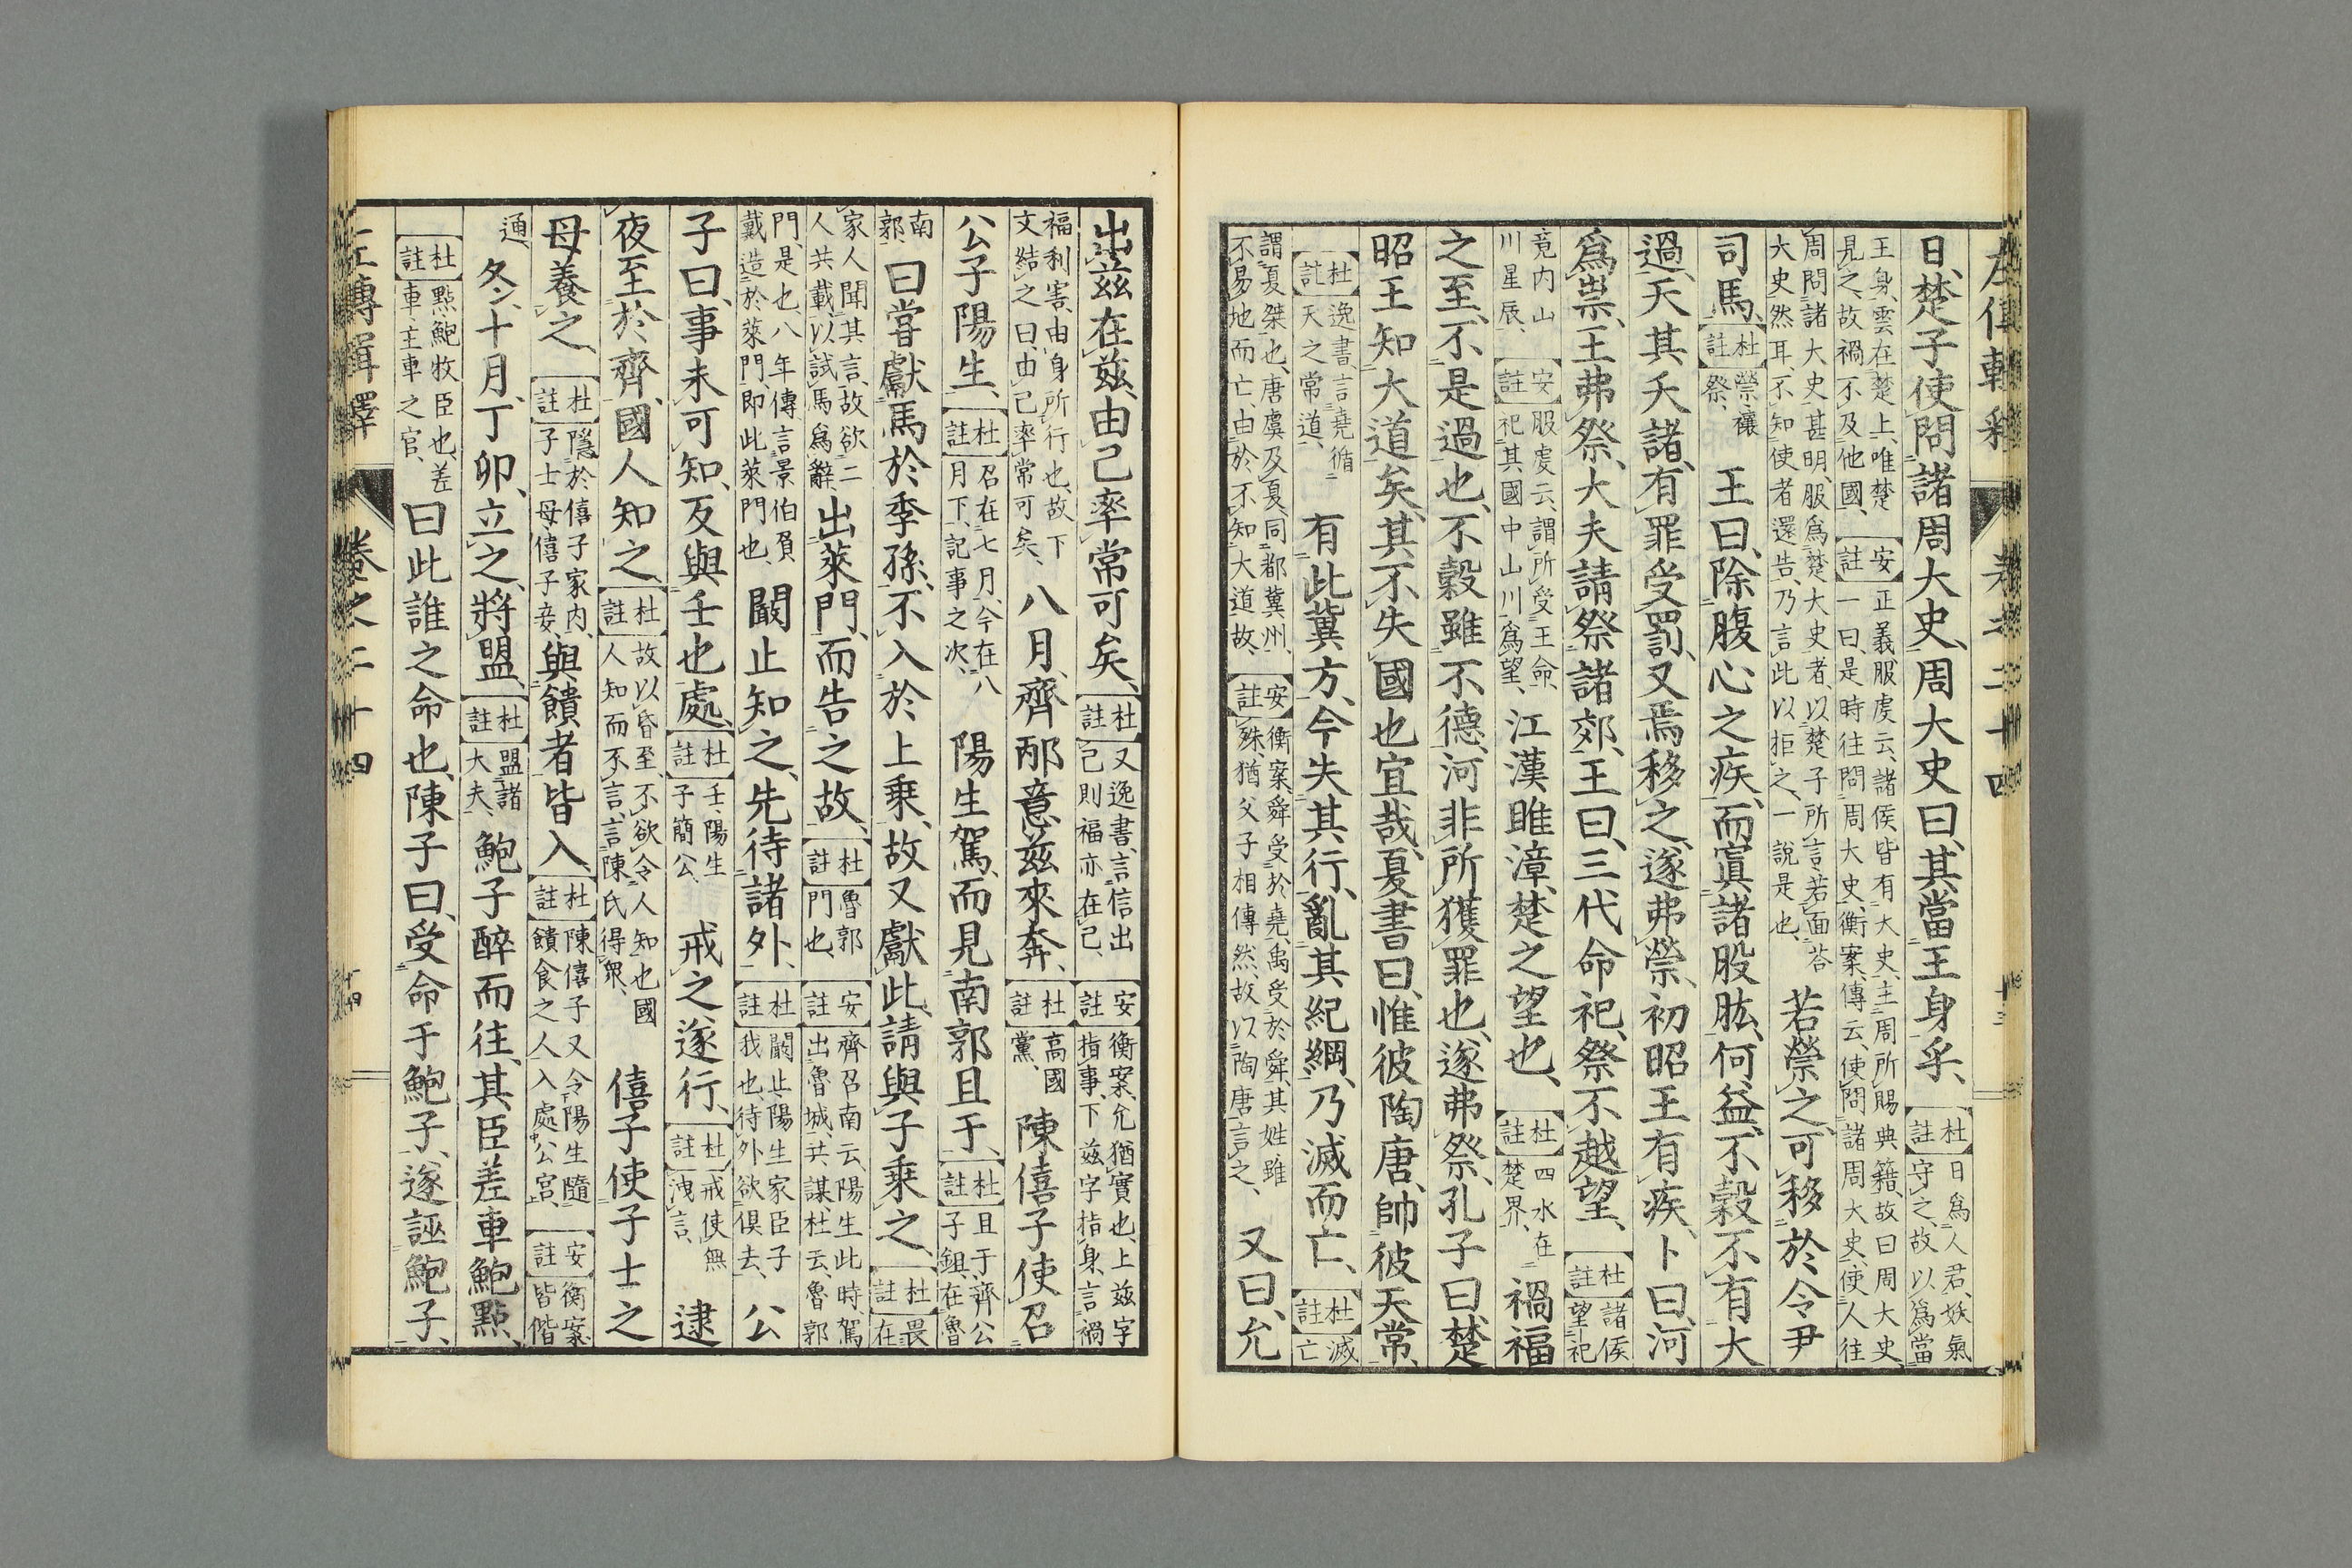 左傳輯釋 卷之二十四 十三
日、楚子使問諸周大史、周大史曰、其當王身乎、杜註 日爲人君、妖氣守之、故以爲當
王身、雲在楚上、唯楚見之、故禍不及他國、安註 正義服虔云、諸侯皆有大史、主周所賜典籍、故曰周大史、一曰、是時往問周大史、衡案、傳云、使問諸周大史、使人往
周問諸大史甚明、服爲楚大史者、以楚子所言、若面荅大史然耳、不知使者還告、乃言此以拒之、一說是也、若禜之、可移於令尹
司馬、杜註 禜、禳祭、王曰、除腹心之疾、而寘諸股肱、何益、不穀不有大
過、天其夭諸、有罪受罰、又焉移之、遂弗禜、初昭王有疾、卜曰、河
爲祟、王弗祭、大夫請祭諸郊、王曰、三代命祀、祭不越望、杜註 諸侯望祀
竟內山川星辰、安註 服虔云、謂所受王命、祀其國中山川爲望、江漢雎漳、楚之望也、杜註 四水在楚界、禍福
之至、不是過也、不穀雖不德、河非所獲罪也、遂弗祭、孔子曰、楚
昭王知大道矣、其不失國也宜哉、夏書曰、惟彼陶唐、帥彼天常、
杜註 逸書、言堯循天之常道、有此冀方、今失其行、亂其紀綱、乃滅而亡、杜註 滅亡
謂夏桀也、唐虞及夏、同都冀州、不易地而亡、由於不知大道故、安註 衡案、舜受於堯、禹受於舜、其姓雖殊、猶父子相傳然、故以陶唐言之、又曰、允
出茲在茲、由己率常可矣、杜註 又逸書、言信出己、則福亦在己、安註 衡案、允猶實也、上茲字指事、下茲字指身、言禍
福利害、由身所行也、故下文結之曰、由己率常可矣、八月、齊邴意茲來奔、杜註 高國黨、陳僖子使召
公子陽生、杜註 召在七月、今在八月下、記事之次、陽生駕、而見南郭且于、杜註 且于、齊公子鉏、在魯
南郭、曰嘗獻馬於季孫、不入於上乘、故又獻此、請與子乘之、杜註 畏在
家人聞其言、故欲二人共載、以試馬爲辭、出萊門、而告之故、杜註 魯郭門也、安註 齊召南云、陽生此時、駕出魯城、共謀、杜云、魯郭
門、是也、八年傳言景伯負載造於萊門、即此萊門也、闞止知之、先待諸外、杜註 闞止陽生家臣子我也、待外欲俱去、公
子曰、事未可知、反與壬也處、杜註 壬陽生子簡公、戒之遂行、杜註 戒使無洩言、逮
夜至於齊、國人知之、杜註 故以昏至、不欲令人知也、國人知而不言、言陳氏得衆、僖子使子士之
母養之、杜註 隱於僖子家內、子士母、僖子妾、與饋者皆入、杜註 陳僖子又令陽生隨饋食之人、入處公宮、安註 衡案、皆偕
通、冬、十月、丁卯、立之、將盟、杜註 盟諸大夫、鮑子醉而往、其臣差車鮑點、
杜註 點、鮑牧臣也、差車、主車之官、曰此誰之命也、陳子曰、受命于鮑子、遂誣鮑子、
左傳輯釋 卷之二十四 十四